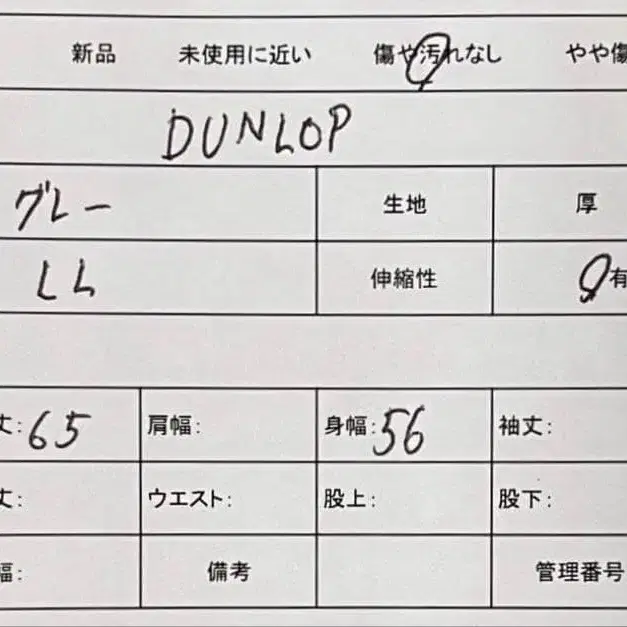 新品 未使用に近い 傷や汚れなし やや傷
DUNLOP
グレー 生地 厚
LL 伸縮性 有
丈:65 肩幅: 身幅:56 袖丈:
丈: ウエスト: 股上: 股下:
幅: 備考 管理番号